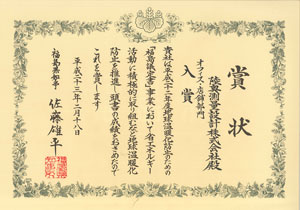 賞状
オフィス・店舗部門
陸奥測量設計株式会社殿
入賞
貴社は平成二十二年度地球温暖化防止のための
「福島議定書」事業において省エネルギー
活動に積極的に取り組むなど地球温暖化
防止を推進し頭書の成績をおさめたので
これを賞します
平成二十三年二月十八日
福島県知事 佐藤雄平